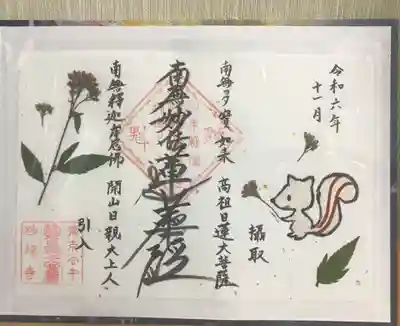 令和六年
十一月
南無多寳如来 高祖日蓮大菩薩
攝取
南無妙法蓮華経
南無釋迦牟尼佛 開山日親大上人
引入